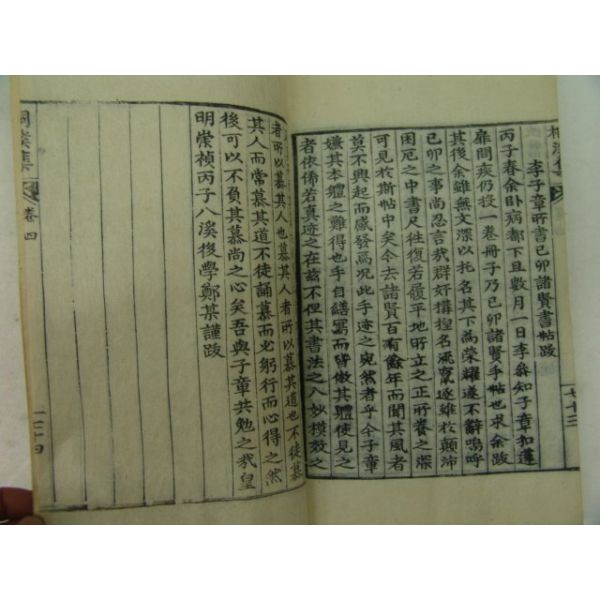 李子章所書己卯諸賢書帖跋
丙子春余臥病都下且數月一日李叅知子章扣蓬
扉問疾仍投一卷冊子乃己卯諸賢手帖也求余跋
其後余雖無文深以托名其下為榮耀遂不辭嗚呼
己卯之事尚忍言我群奸搆捏名流竄逐雖在顛沛
困厄之中書尺往復若履平地所立之正所養之深
可見於斯帖中矣今去諸賢百有餘年而聞其風者
莫不興起而感發焉况此手迹之宛然者乎今子章
嫌其本體之難得也手自繕寫而皆倣其體使見之
者依俙若真迹之在茲不但其書法之入妙模效之
者所以慕其人也慕其人者所以慕其道也不徒慕
其人而常慕其道不徒誦慕而必躬行而心得之然
後可以不負其慕尚之心矣吾與子章共勉之哉皇
明崇禎丙子八溪後學鄭某謹跋
桐溪集
卷四
七十三
七十四